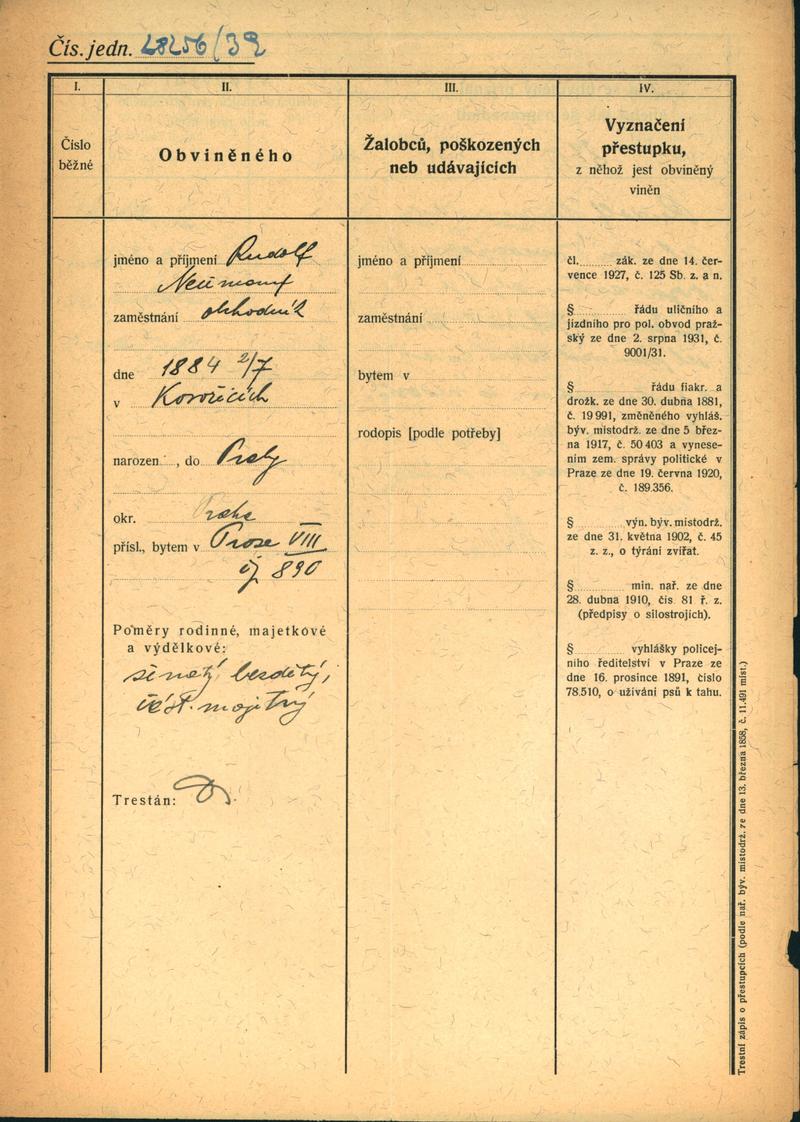 Čís. jedn. 28256/39
I.
Číslo
běžné
II.
Obviněného
III.
Žalobců, poškozených
neb udávajících
IV.
Vyznačení
přestupku,
z něhož jest obviněný
viněn
jméno a příjmení Rudolf
Neumann
zaměstnání obchodník
dne 1884 2/7
v
narozen , do Prahy
okr. Praha
přísl., bytem v Praze VIII
čj 890
Poměry rodinné, majetkové
a výdělkové:
ženatý, bezdětný,
majetný
Trestán:
jméno a příjmení
zaměstnání
bytem v
rodopis [podle potřeby]
čl. zák. ze dne 14. čer-
vence 1927, č. 125 Sb. z. a n.
§ řádu uličního a
jízdního pro pol. obvod praž-
ský ze dne 2. srpna 1931, č.
9001/31.
§ řádu fiakr. a
drožk. ze dne 30. dubna 1881,
č. 19 991, změněného vyhláš.
býv. místodrž. ze dne 5 břez-
na 1917, č. 50 403 a vynese-
ním zem. správy politické v
Praze ze dne 19. června 1920,
č. 189.356.
§ výn. býv. místodrž.
ze dne 31. května 1902, č. 45
z. z., o týrání zvířat.
§ min. nař. ze dne
28. dubna 1910, čís 81 ř. z.
(předpisy o silostrojích).
§ vyhlášky policej-
ního ředitelství v Praze ze
dne 16. prosince 1891, číslo
78.510, o užívání psů k tahu.
Trestní zápis o přestupcích (podle nař. býv. místodrž. ze dne 13. března 1858, č. 11.491 míst.)